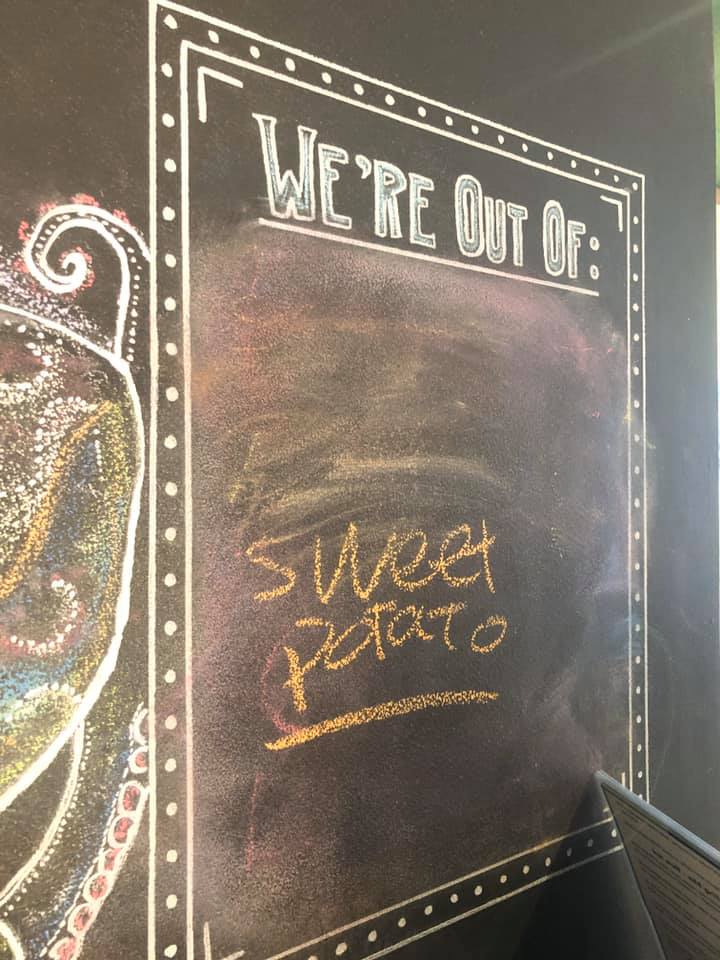 WE'RE OUT OF:
sweet
potato